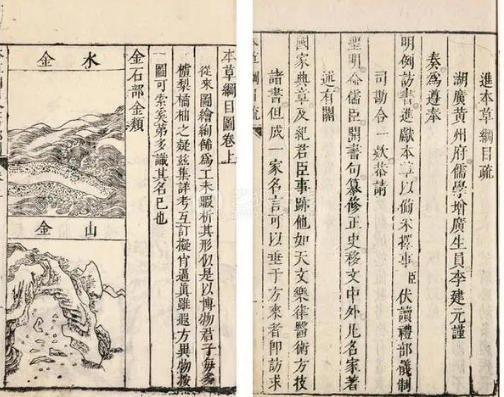 進本草綱目疏
湖廣黃州府儒學增廣生員李建元謹
奏為遵奉
明例訪書進獻本草以備采擇事臣伏讀禮部儀制
司勘合一款恭請
聖明命儒臣開書局纂修正史移文中外凡名家著
述有關
國家典章及紀君臣事跡他如天文樂律醫術方技
諸書但成一家名言可以垂于方來者即訪求
本草綱目圖卷上
從來圖繪絢飾為工未暇析其形似是以博物君子每多
樝梨橘柚之疑茲集詳考互訂擬肖逼真雖遐方異物按
圖可索奚第多識其名已也
金石部金類
水金
山金